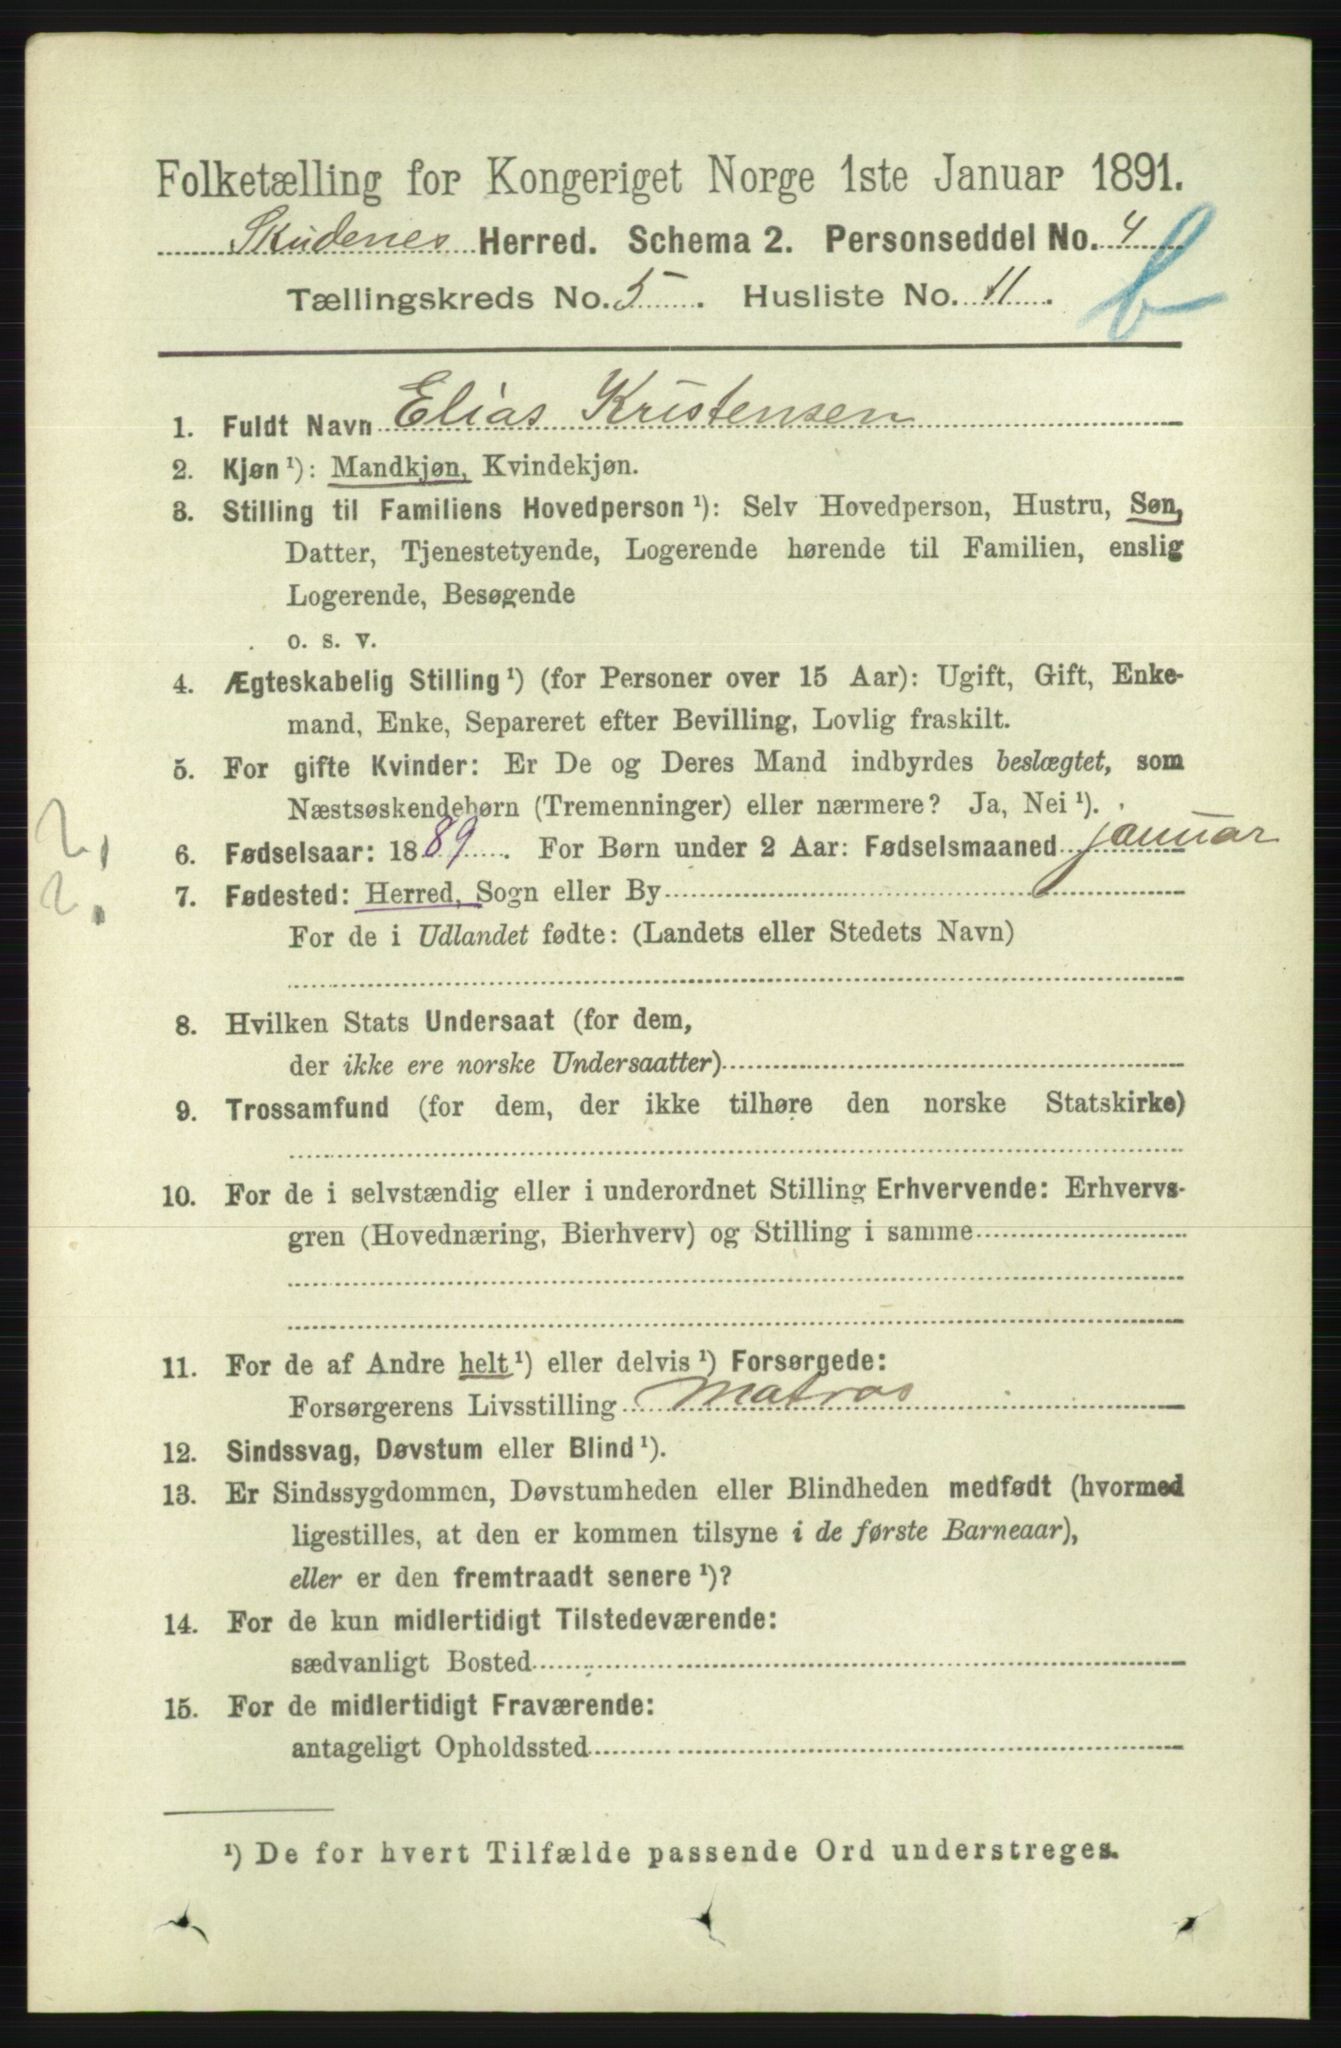 Folketælling for Kongeriget Norge 1ste Januar 1891.
Skudenes Herred. Schema 2. Personseddel No. 4
b
Tællingskreds No. 5. Husliste No. 11.
1. Fuldt Navn Elias Kristensen
2. Kjøn ¹): Mandkjøn, Kvindekjøn.
3. Stilling til Familiens Hovedperson ¹): Selv Hovedperson, Hustru, Søn,
Datter, Tjenestetyende, Logerende hørende til Familien, enslig
Logerende, Besøgende
o. s. v.
4. Ægteskabelig Stilling ¹) (for Personer over 15 Aar): Ugift, Gift, Enke-
mand, Enke, Separeret efter Bevilling, Lovlig fraskilt.
5. For gifte Kvinder: Er De og Deres Mand indbyrdes beslægtet, som
Næstsøskendebørn (Tremenninger) eller nærmere? Ja, Nei ¹).
2,
6. Fødselsaar: 1889. For Børn under 2 Aar: Fødselsmaaned januar
2.
7. Fødested: Herred, Sogn eller By
For de i Udlandet fødte: (Landets eller Stedets Navn)
8. Hvilken Stats Undersaat (for dem,
der ikke ere norske Undersaatter)
9. Trossamfund (for dem, der ikke tilhøre den norske Statskirke)
10. For de i selvstændig eller i underordnet Stilling Erhvervende: Erhvervs-
gren (Hovednæring, Bierhverv) og Stilling i samme
11. For de af Andre helt ¹) eller delvis ¹) Forsørgede:
Forsørgerens Livsstilling Matros
12. Sindssvag, Døvstum eller Blind ¹).
13. Er Sindssygdommen, Døvstumheden eller Blindheden medfødt (hvormed
ligestilles, at den er kommen tilsyne i de første Barneaar),
eller er den fremtraadt senere ¹)?
14. For de kun midlertidigt Tilstedeværende:
sædvanligt Bosted
15. For de midlertidigt Fraværende:
antageligt Opholdssted
¹) De for hvert Tilfælde passende Ord understreges.